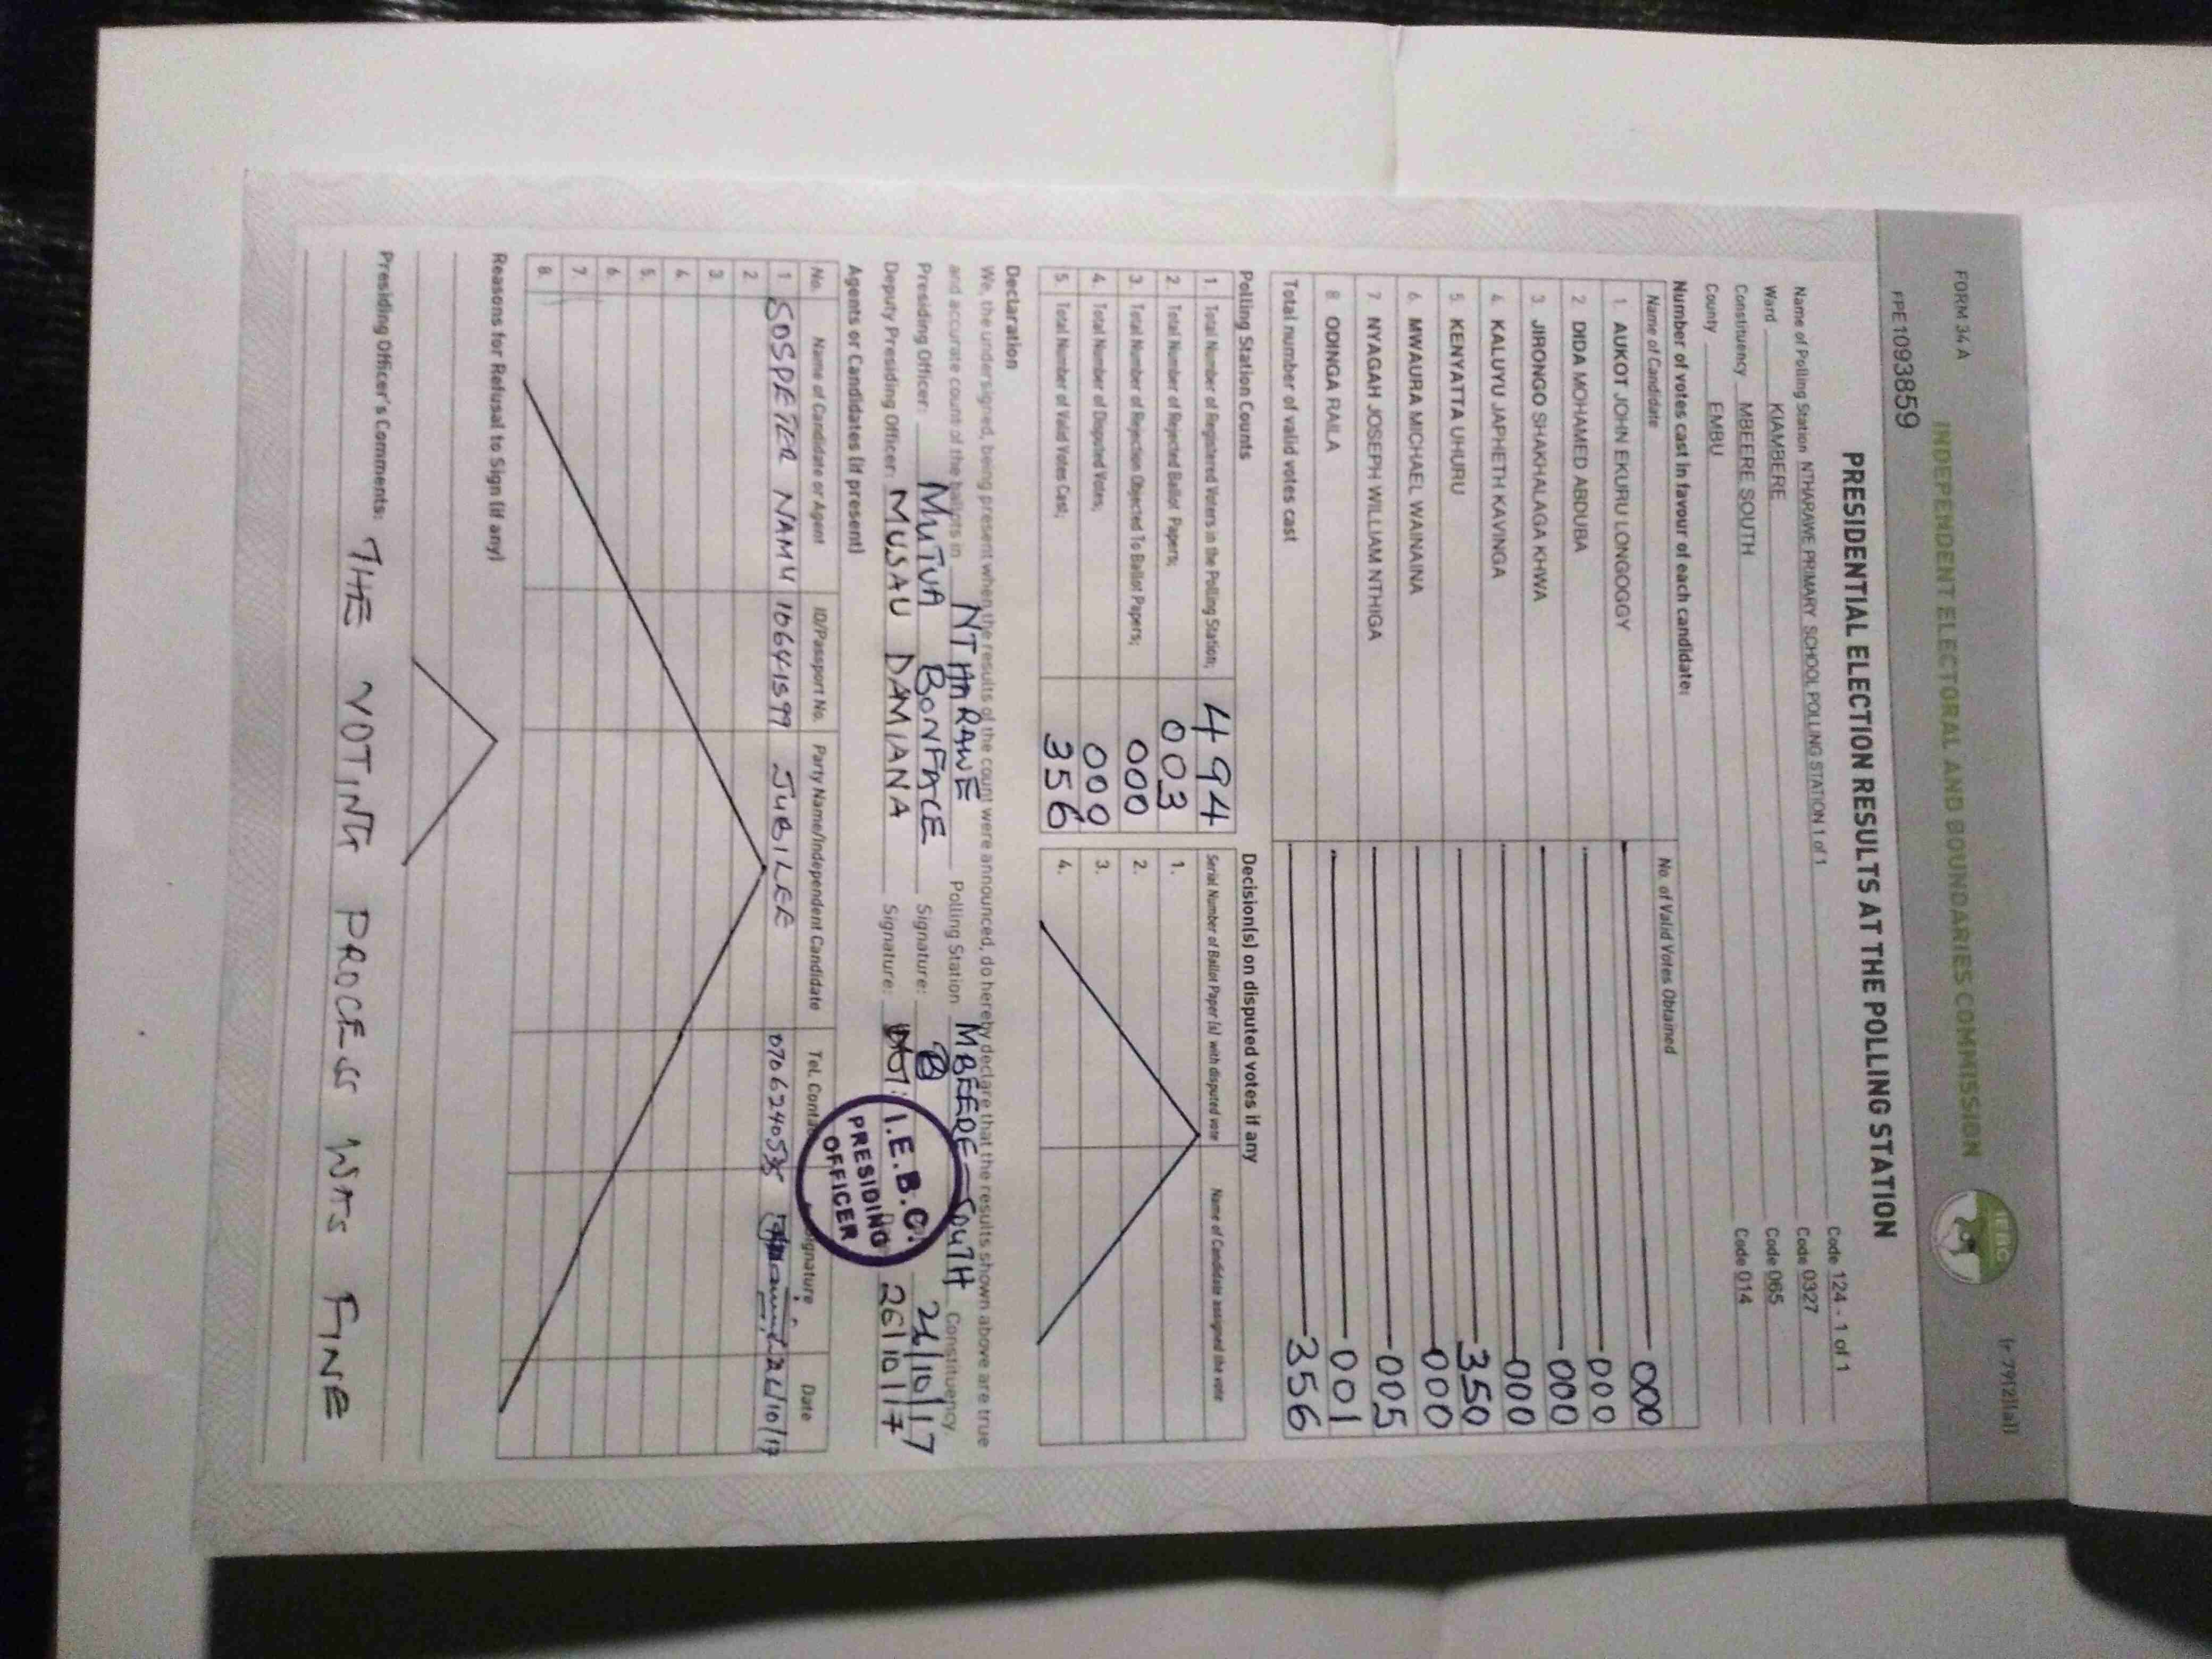 FORM 34 A
INDEPENDENT ELECTORAL AND BOUNDARIES COMMISSION
IEBC
PPE 1093859
PRESIDENTIAL ELECTION RESULTS AT THE POLLING STATION
Name of Polling Station NTHARAWE PRIMARY SCHOOL POLLING STATION 1 of 1 Code 124 - 1 of 1
Ward KIAMBERE Code 0327
Constituency MBEERE SOUTH Code 065
County EMBU Code 014
Number of votes cast in favour of each candidate:
Name of Candidate No. of Valid Votes Obtained
1. AUKOT JOHN EKURU LONGOGGY 000
2 DIDA MOHAMED ABDUBA 000
3. JIRONGO SHAKHALAGA KHWA 000
4. KALUYU JAPHETH KAVINGA 000
5. KENYATTA UHURU 350
6. MWAURA MICHAEL WAINAINA 000
7 NYAGAH JOSEPH WILLIAM NTHIGA 005
8 ODINGA RAILA 001
Total number of valid votes cast 356
Polling Station Counts Decision(s) on disputed votes if any
1 Total Number of Registered Voters in the Polling Station; 494 Serial Number of Ballot Paper (s) with disputed vote Name of Candidate assigned the vote
2. Total Number of Rejected Ballot Papers; 003 1.
3. Total Number of Rejection Objected To Ballot Papers; 000 2.
4. Total Number of Disputed Votes; 000 3.
5. Total Number of Valid Votes Cast; 356 4.
Declaration
We, the undersigned, being present when the results of the count were announced, do hereby declare that the results shown above are true
and accurate count of the ballots in NTHARAWE Polling Station MBEERE SOUTH Constituency
Presiding Officer: MUTUA BONFACE Signature: 26/10/17
Deputy Presiding Officer: MUSAU DAMIANA Signature: 26/10/17
I.E.B.C.
PRESIDING
OFFICER
Agents or Candidates (if present)
No. Name of Candidate or Agent ID/Passport No. Party Name/Independent Candidate Tel. Contact Signature Date
1 SOSPETER NAMU 10641599 JUBILEE 26/10/17
2.
3.
4.
5.
6.
7.
8.
Reasons for Refusal to Sign (if any)
Presiding Officer's Comments: THE VOTING PROCESS WAS FINE